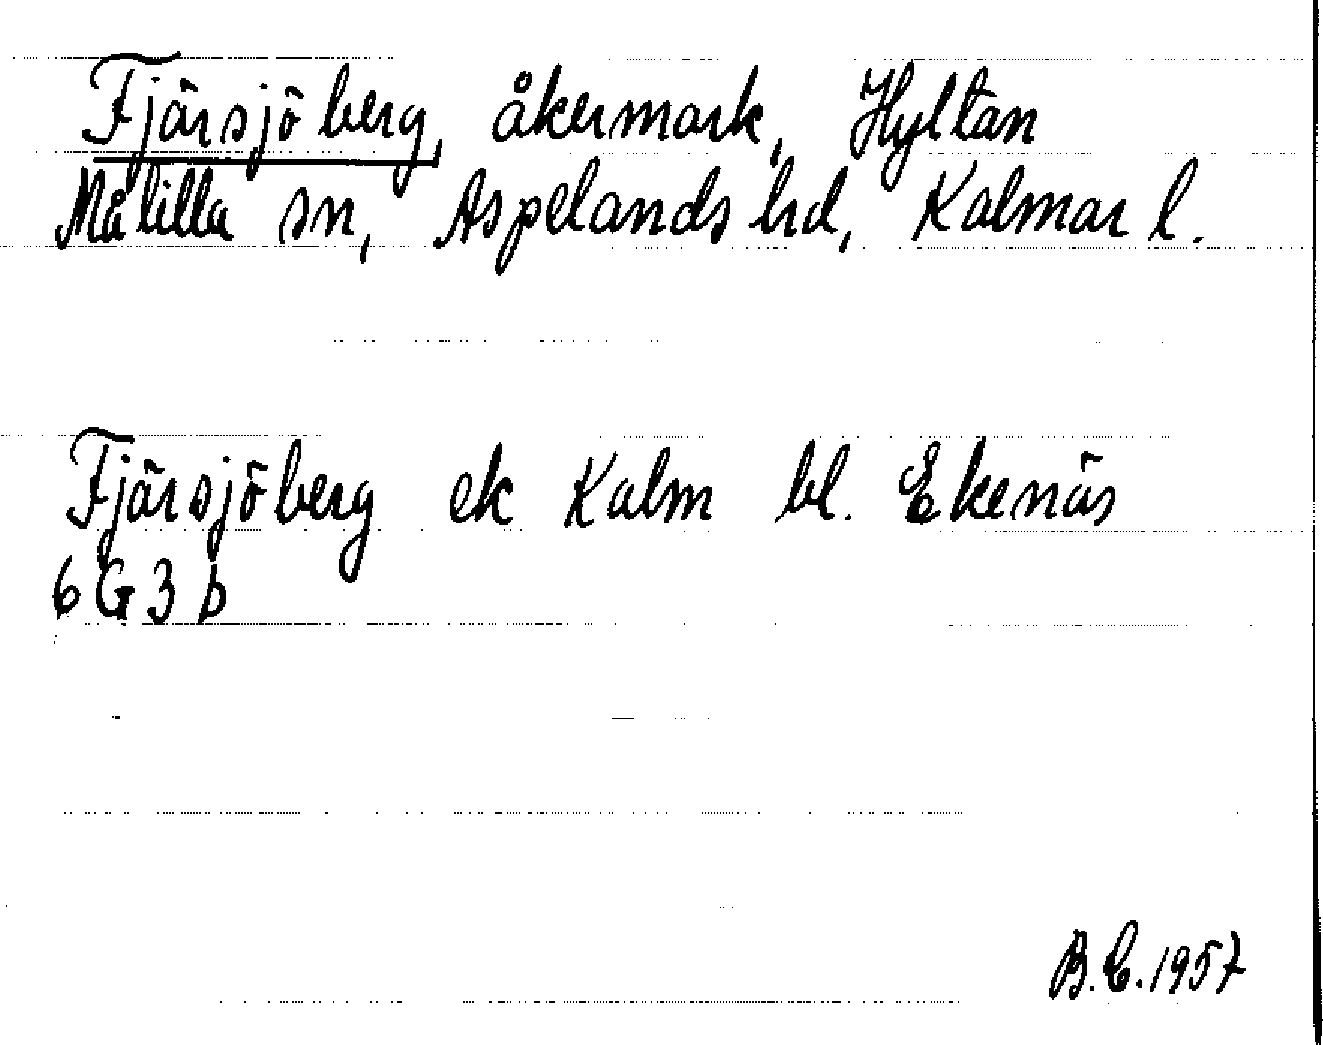 Fjärsjöberg, åkermark, Hyltan
Målilla sn, Aspelands hd, Kalmar l.
Fjärsjöberg ek Kalm bl. Ekenäs
6G3b
B.C.1957